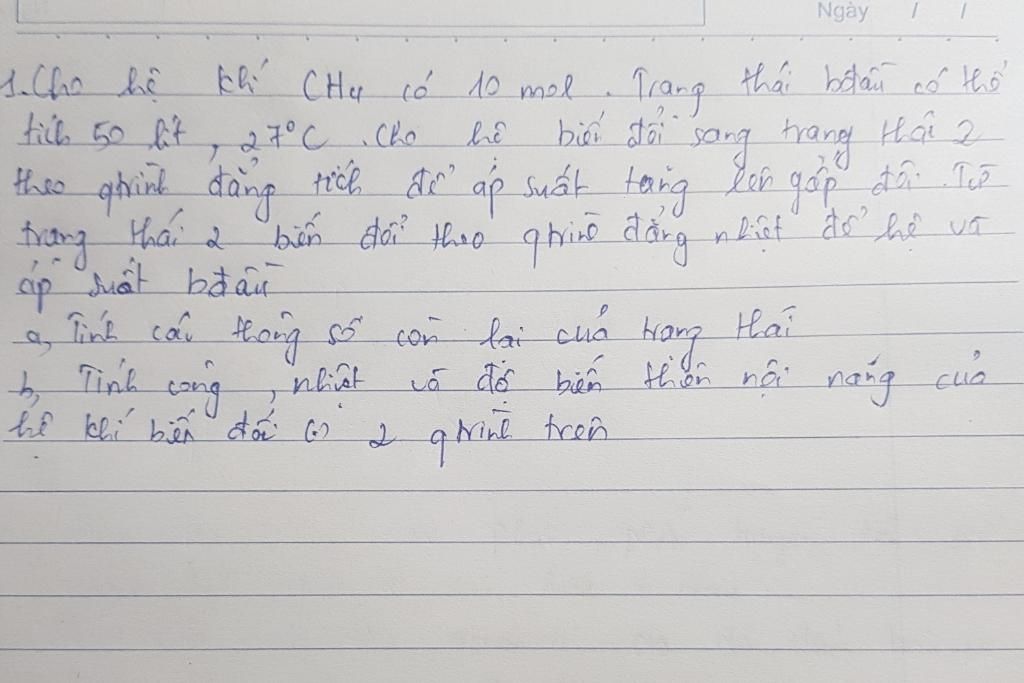 Ngày / /
1. Cho hệ khí CH4 có 10 mol. Trạng thái bđầu có thể
tích 50 lít, 27°C. Cho hệ biến đổi sang trạng thái 2
theo qtrình đẳng tích để áp suất tăng lên gấp đôi. Từ
trạng thái 2 biến đổi theo qtrình đẳng nhiệt để hệ về
áp suất bđầu
a, Tính các thông số còn lại của trạng thái
b, Tính công, nhiệt và độ biến thiên nội năng của
hệ khí biến đổi 2 qtrình trên